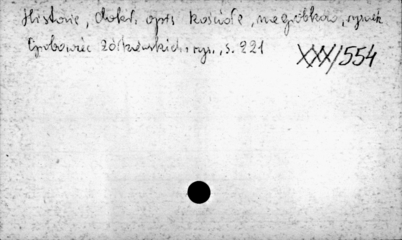 Historie, dokł. opis kościoła, nagrobków, rynek
Grobowiec Żółkiewskich, ryc., s. 221
XXX/554